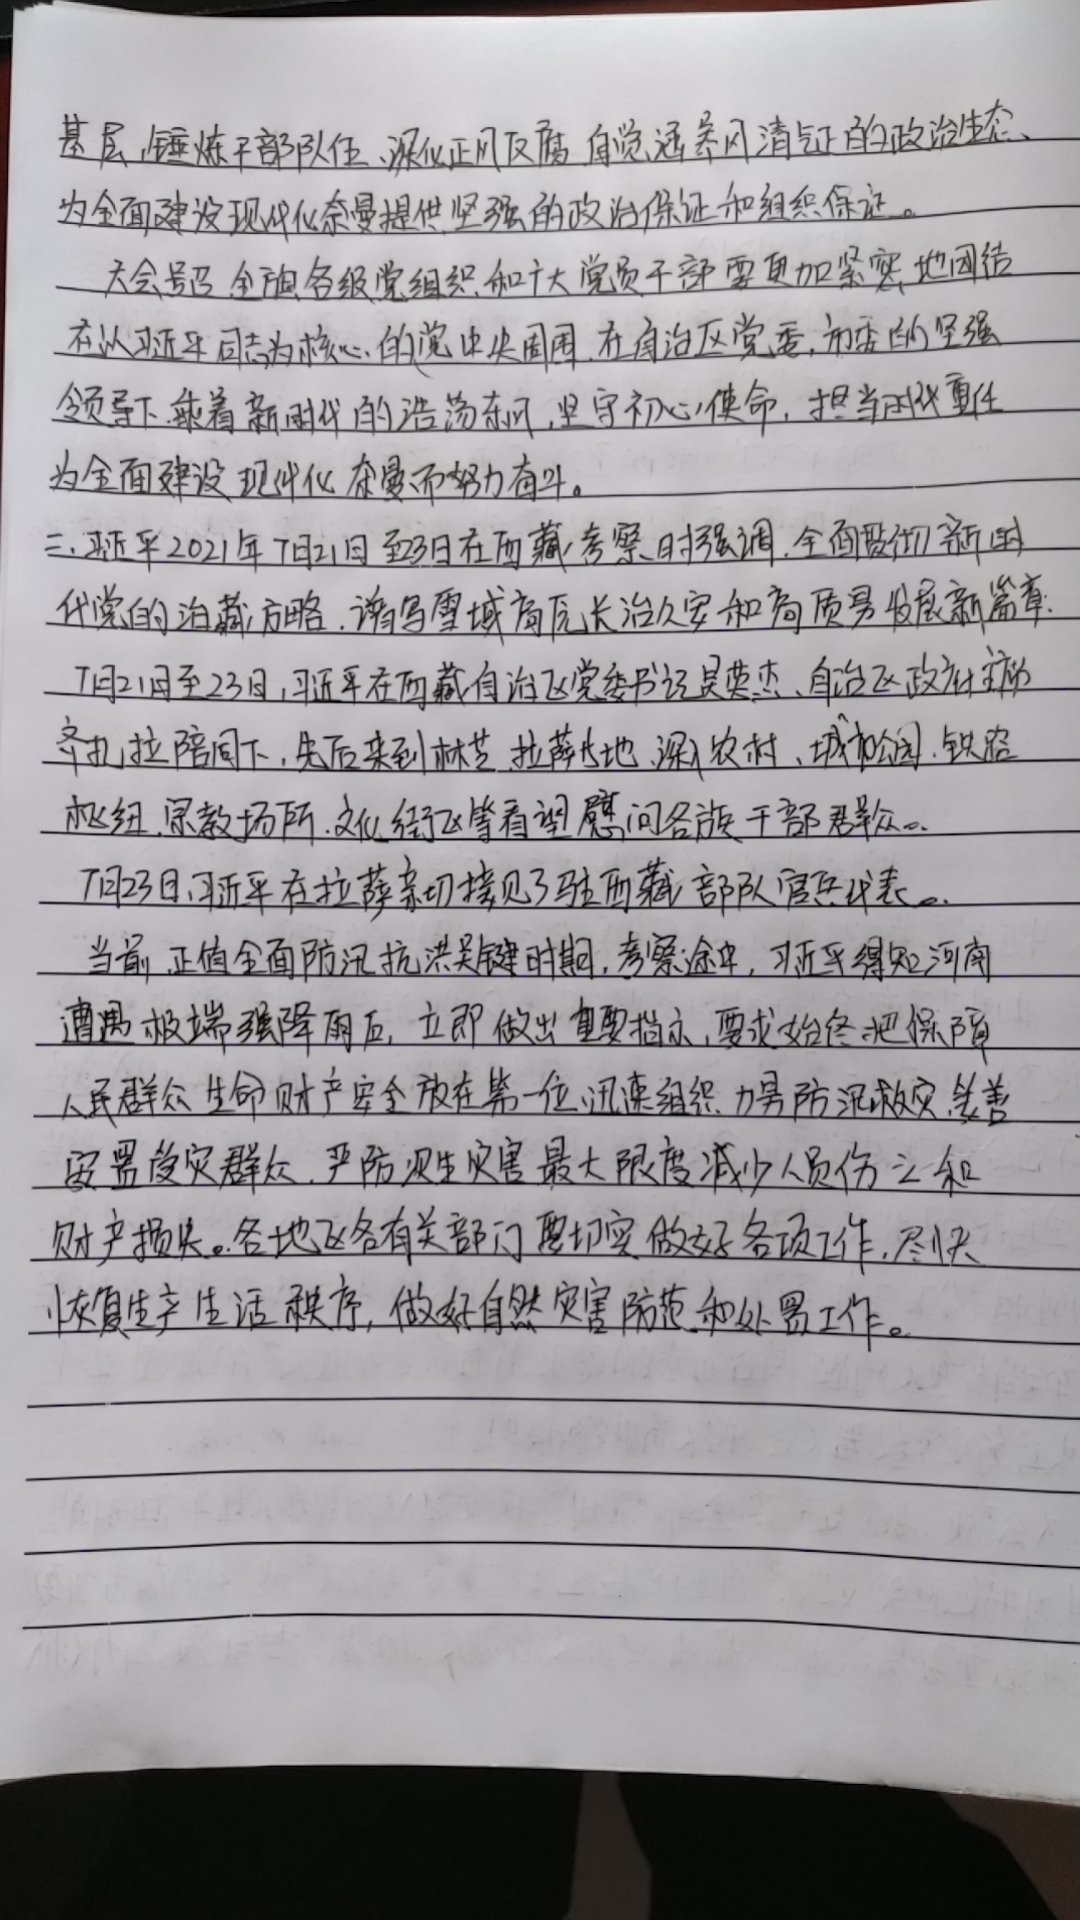 基层,锤炼干部队伍、深化正风反腐,自觉涵养风清气正的政治生态、
为全面建设现代化奈曼提供坚强的政治保证和组织保证。
大会号召全旗各级党组织和广大党员干部要更加紧密地团结
在以习近平同志为核心的党中央周围,在自治区党委,市委的坚强
领导下,乘着新时代的浩荡东风,坚守初心使命,担当时代重任
为全面建设现代化奈曼而努力奋斗。
三、习近平2021年7月21日至23日在西藏考察时强调,全面贯彻新时
代党的治藏方略,谱写雪域高原长治久安和高质量发展新篇章.
7月21日至23日,习近平在西藏自治区党委书记吴英杰、自治区政府主席
齐扎拉陪同下,先后来到林芝、拉萨等地、深入农村、城市公园,铁路
枢纽、宗教场所、文化街区等看望慰问各族干部群众。
7月23日,习近平在拉萨亲切接见了驻西藏部队官兵代表。
当前,正值全面防汛抗洪关键时期,考察途中,习近平得知河南
遭遇极端强降雨后,立即做出重要指示,要求始终把保障
人民群众生命财产安全放在第一位,迅速组织力量防汛救灾,妥善
安置受灾群众,严防次生灾害,最大限度减少人员伤亡和
财产损失。各地区各有关部门要切实做好各项工作,尽快
恢复生产生活秩序,做好自然灾害防范和处置工作。